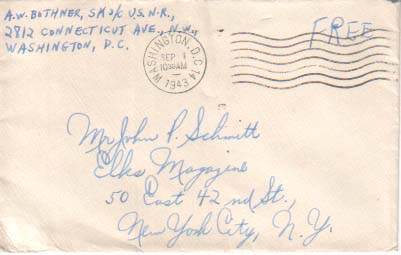 A.W. BOTHNER, SK3/C U.S.N.R.,
2812 CONNECTICUT AVE., N.W.,
WASHINGTON, D.C.
WASHINGTON, D.C. 14
SEP 1
1030AM
1943
FREE
Mr John P. Schmitt
Elks Magazine
50 East 42 nd St.,
New York City, N.Y.